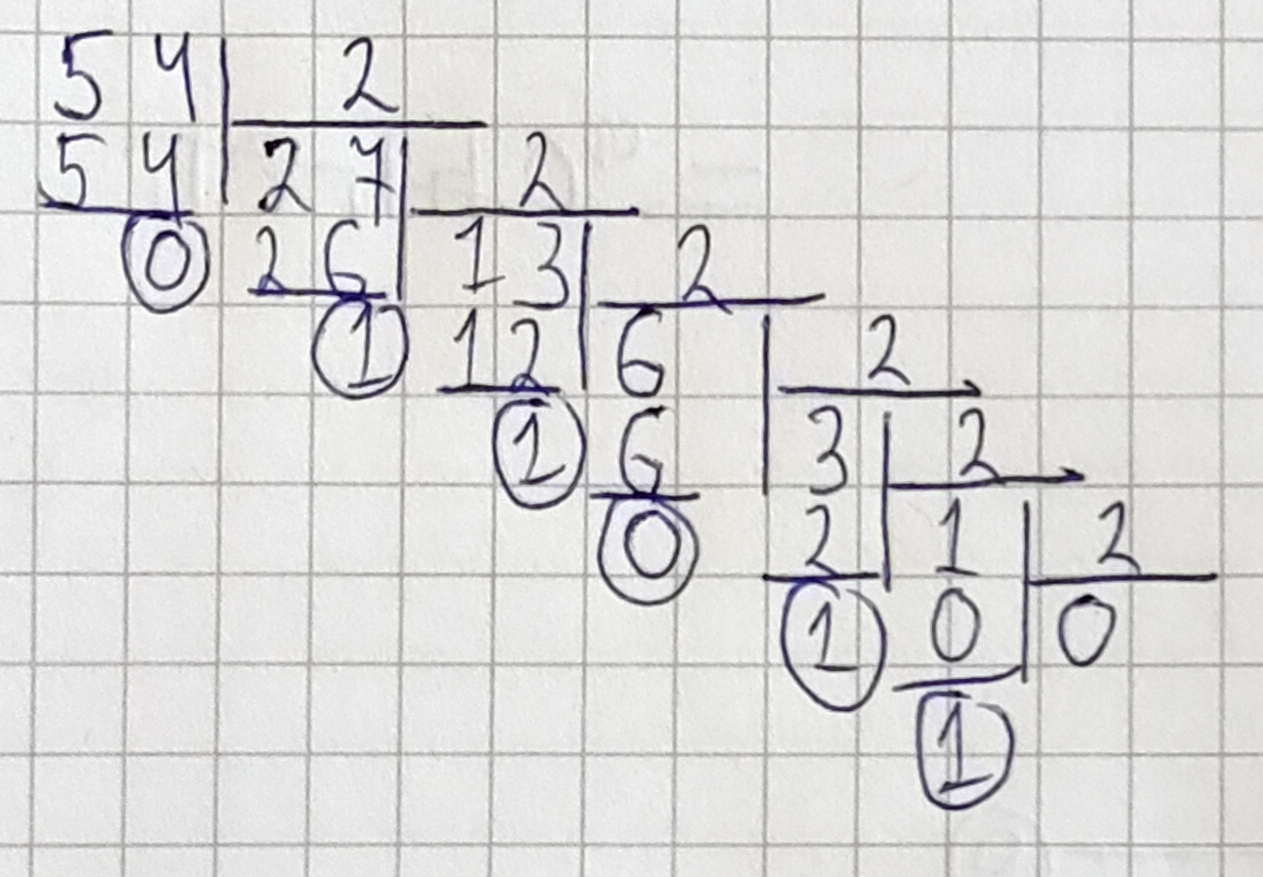 54 2
54 27 2
0 26 13 2
1 12 6 2
1 6 3 2
0 2 1 2
1 0 0
1